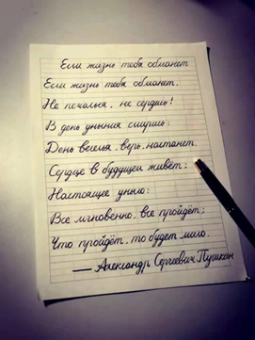 Если жизнь тебя обманет
Если жизнь тебя обманет,
Не печалься, не сердись!
В день уныния смирись:
День веселья, верь, настанет.
Сердце в будущем живёт;
Настоящее уныло:
Все мгновенно, все пройдёт;
Что пройдёт, то будет мило.
— Александр Сергеевич Пушкин